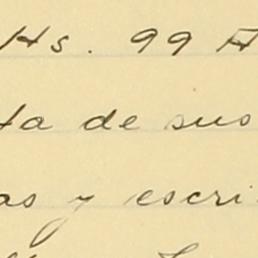 Hs. 99 A
ta de sus
as y escri